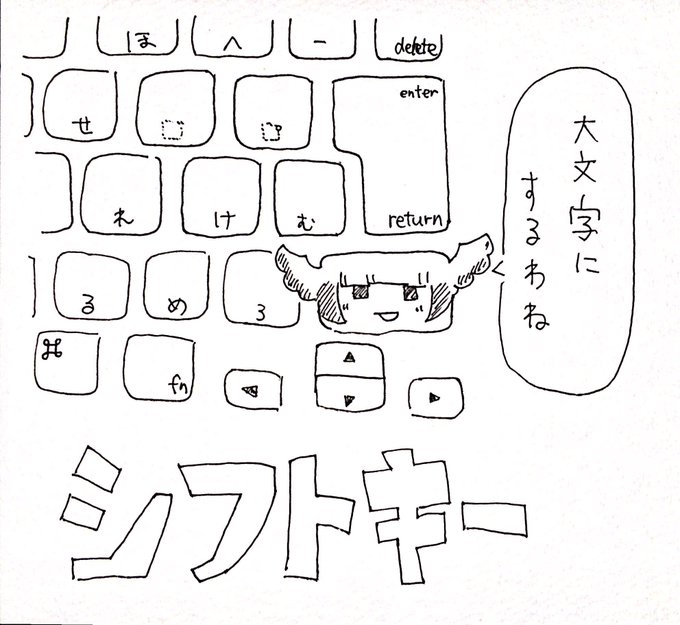 ほ へ ー delete
せ ゛ ゜ enter
れ け む return
大文字に
するわね
る め ろ
⌘ fn
◀ ▲ ▼ ▶
シフトキー